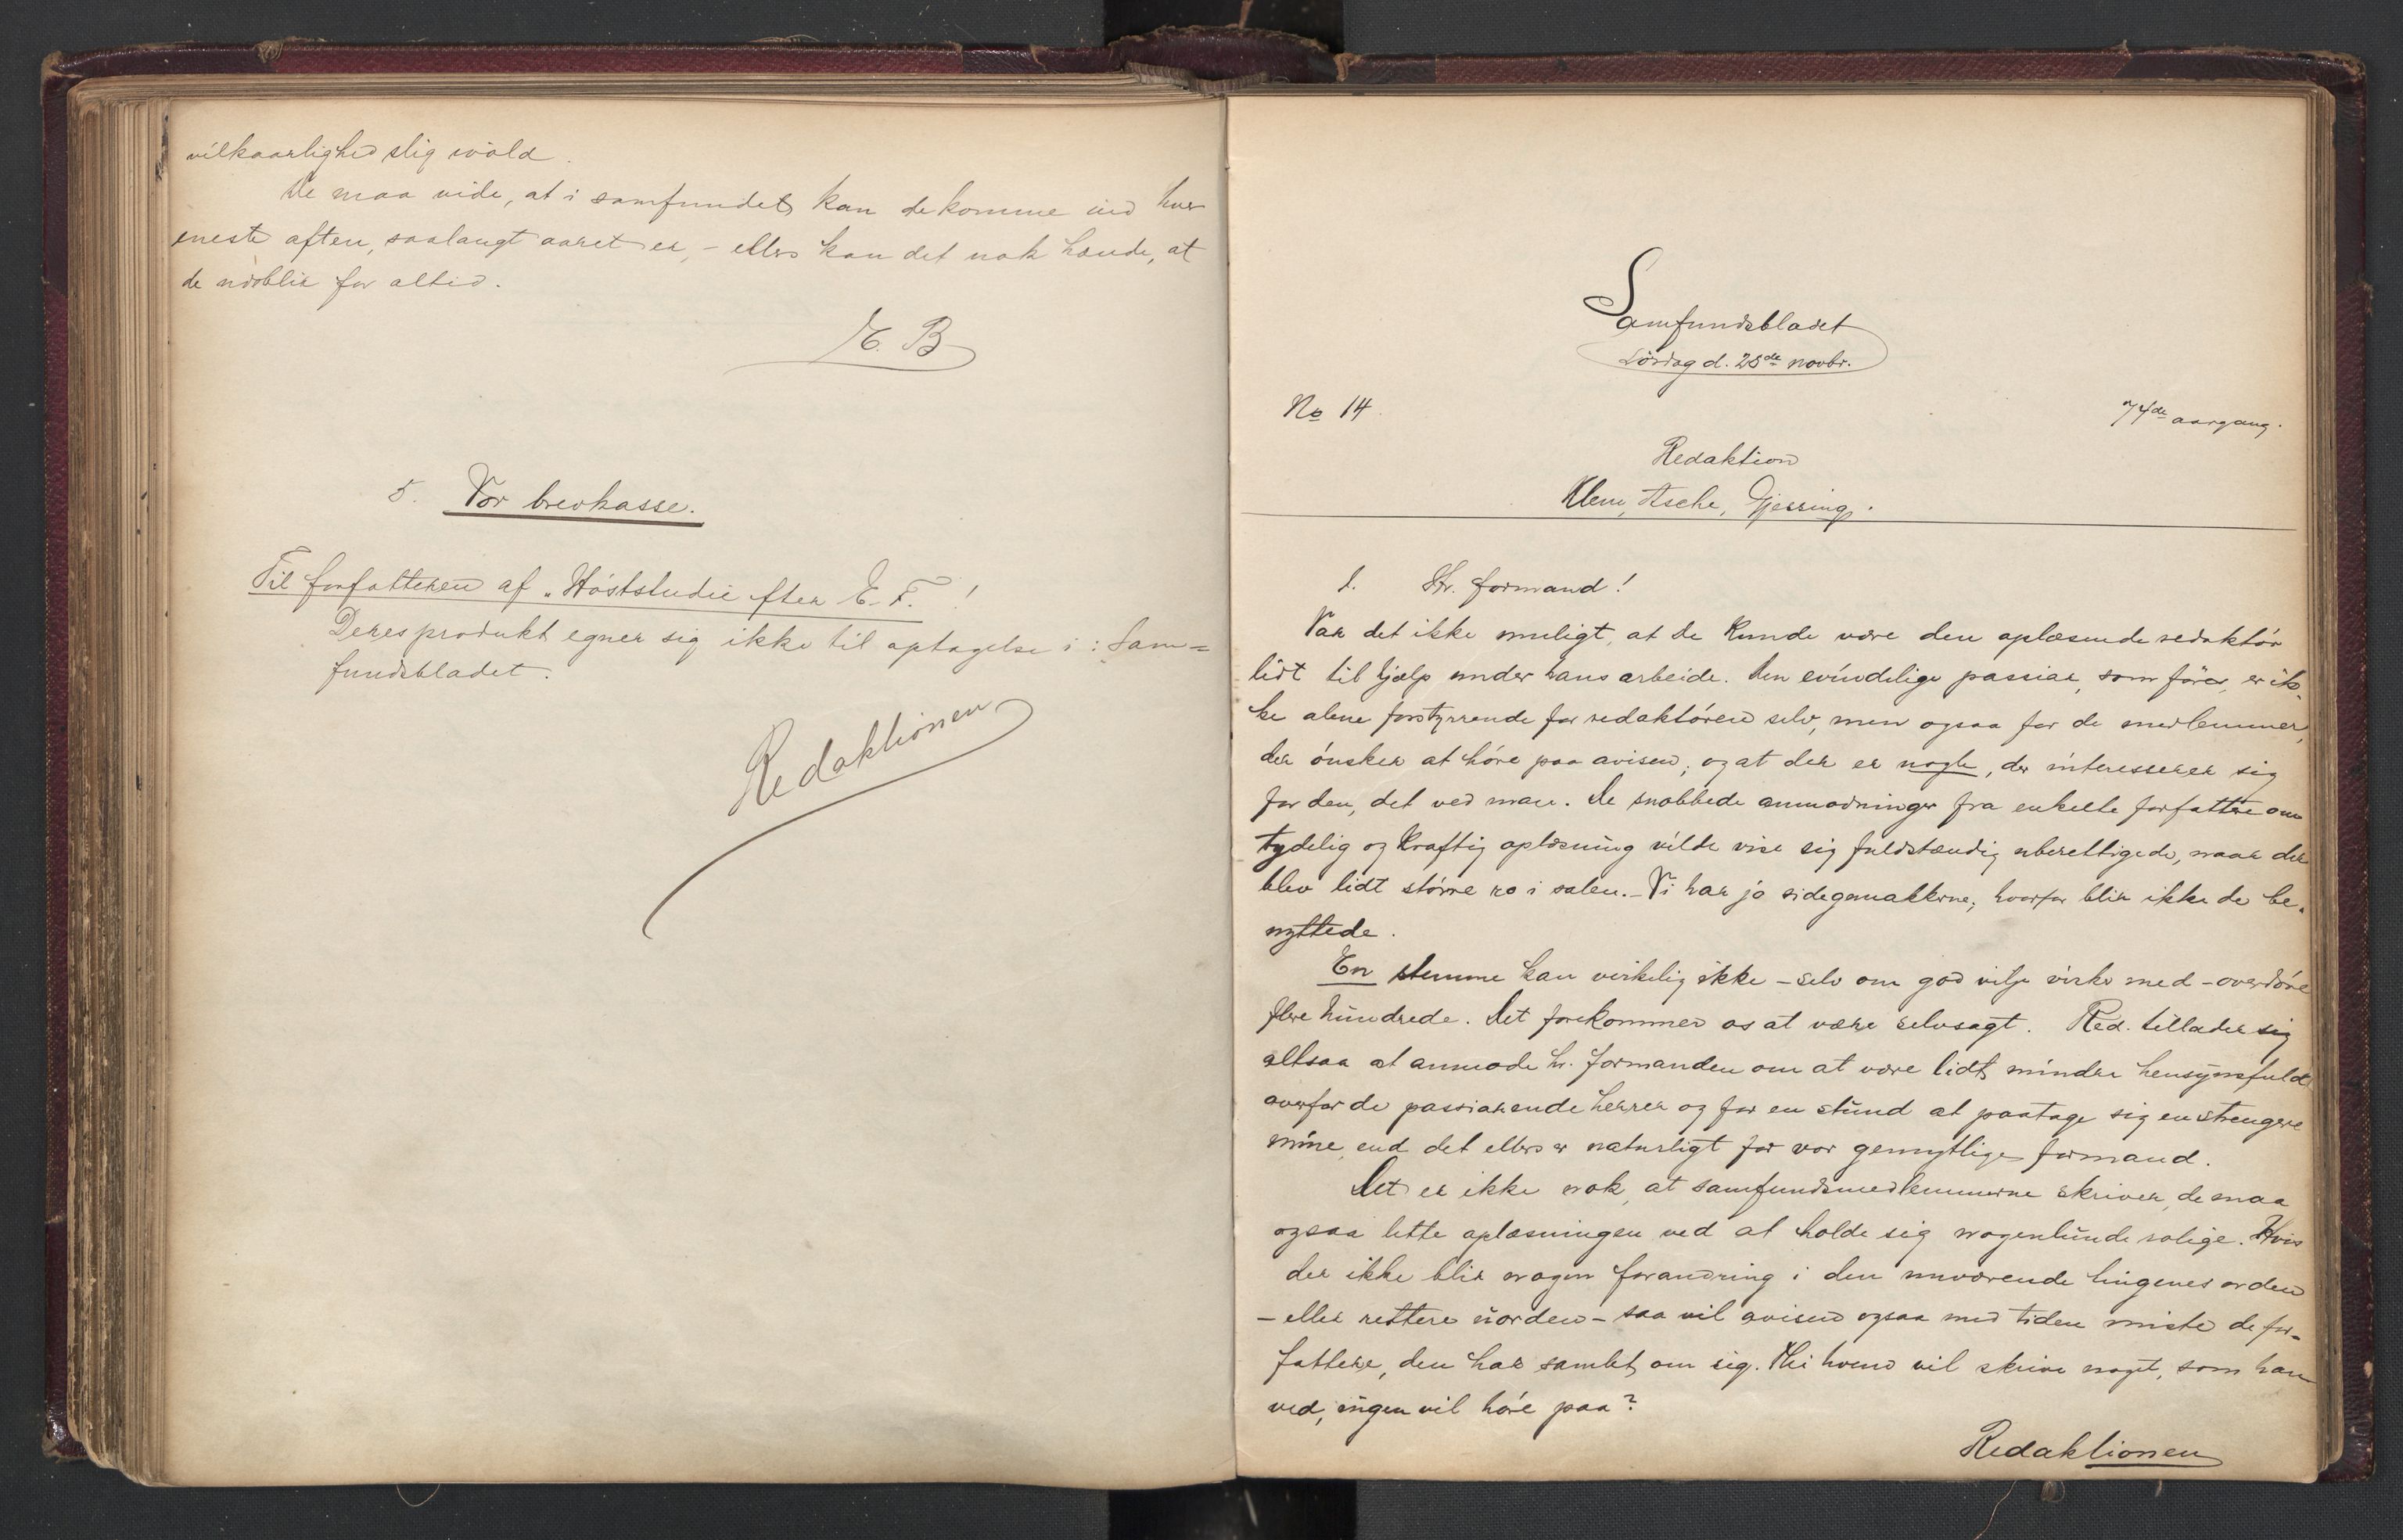 vilkaarlighed slig vold.
De maa vide, at i samfundet kan de komme ind hver
eneste aften, saalangt aaret er, – ellers kan det nok hænde, at
de udeblir for altid.
E. B
5. Vor brevkasse.
Til forfatteren af „Høststudie efter E. F. !
Deres produkt egner sig ikke til optagelse i : Sam=
fundsbladet.
Redaktionen
Samfundsbladet
Lørdag d. 25de novbr.
No 14
74de aargang.
Redaktion
Klem, Asche, Gjessing.
1. Hr. formand!
Var det ikke muligt, at De kunde være den oplæsende redaktør
lidt til hjælp under hans arbeide. Den evindelige passiar, som føres, er ik-
ke alene forstyrrende for redaktøren selv, men ogsaa for de medlemmer,
der ønsker at høre paa avisen; og at der er nogle, der interesserer sig
for den, det ved man. De snobbede anmodninger fra enkelte forfattere om
tydelig og kraftig oplæsning vilde vise sig fuldstændig uberettigede, naar der
blev lidt større ro i salen. – Vi har jo sidegemakkerne; hvorfor blir ikke de be-
nyttede.
En stemme kan virkelig ikke – selv om god vilje virke med – overdøve
flere hundrede. Det forekommer os at være selvsagt. Red. tillader sig
altsaa at anmode hr. formanden om at være lidt mindre hensynsfuld
overfor de passiarende herrer og for en stund at paatage sig en strengere
mine, end det ellers er naturligt for vor gemytlige formand.
Det er ikke nok, at samfundsmedlemmerne skriver, de maa
ogsaa lette oplæsningen ved at holde sig nogenlunde rolige. Hvis
der ikke blir nogen forandring i den nuværende tingenes orden
– eller rettere uorden – saa vil avisen ogsaa med tiden miste de for-
fattere, den har samlet om sig. Thi hvem vil skrive noget, som han
ved, ingen vil høre paa?
Redaktionen